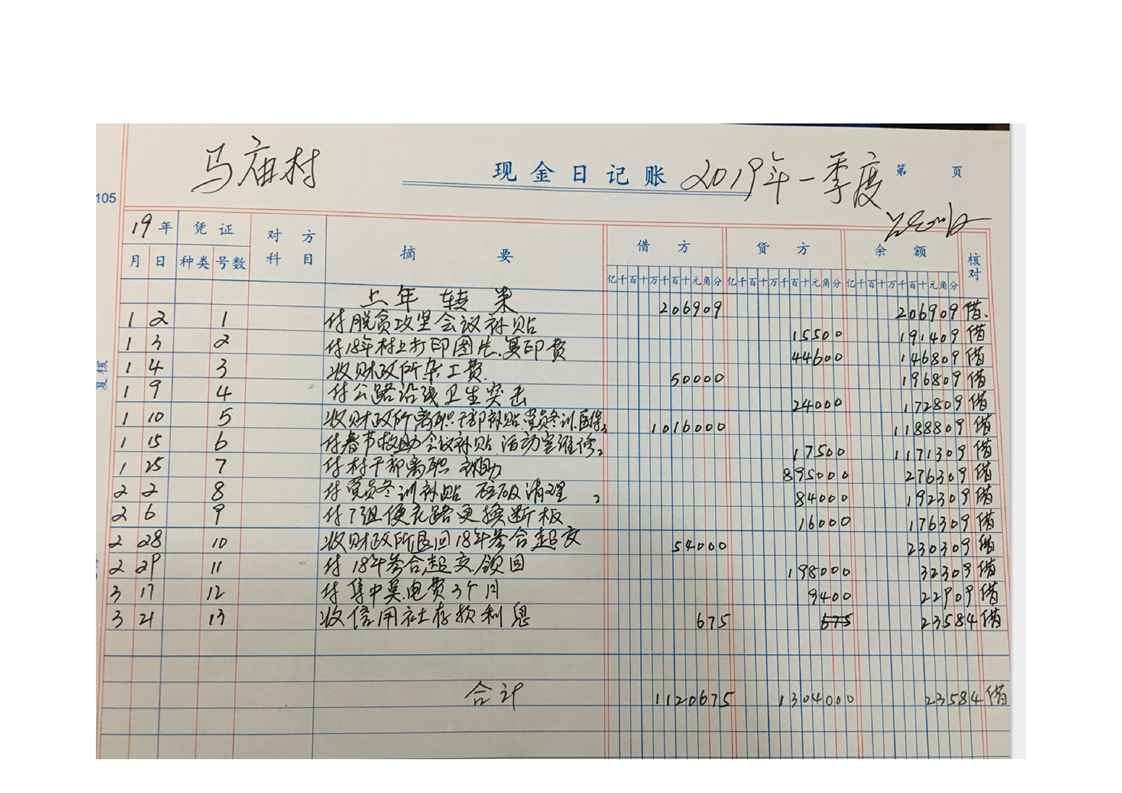 马庙村 现金日记账 2019年一季度 第 页
105
19年 凭证 对方科目 摘要 借方 贷方 余额 核对
月 日 种类 号数 亿千百十万千百十元角分 亿千百十万千百十元角分 亿千百十万千百十元角分
上年转来 206909 206909 借
1 2 1 付脱贫攻坚会议补贴 15500 191409 借
1 3 2 付18年村上打印图片、复印费 44600 146809 借
1 4 3 收财政所杂工费 50000 196809 借
1 9 4 付公路沿线卫生突击 24000 172809 借
1 10 5 收财政所离职干部补贴党员冬训 1016000 1188809 借
1 15 6 付春节救助会议补贴 活动室维修 17500 1171309 借
1 25 7 付村干部离职 救助 895000 276309 借
2 2 8 付党员冬训补贴 清理 84000 192309 借
2 6 9 付7组便元路更换断板 16000 176309 借
2 28 10 收财政所退回18年参合超交 54000 230309 借
2 28 11 付18年参合超交领回 198000 32309 借
3 17 12 付集中 电费3个月 9400 22909 借
3 21 13 收信用社存款利息 675 675 23584 借
合计 1120675 1304000 23584 借
复核